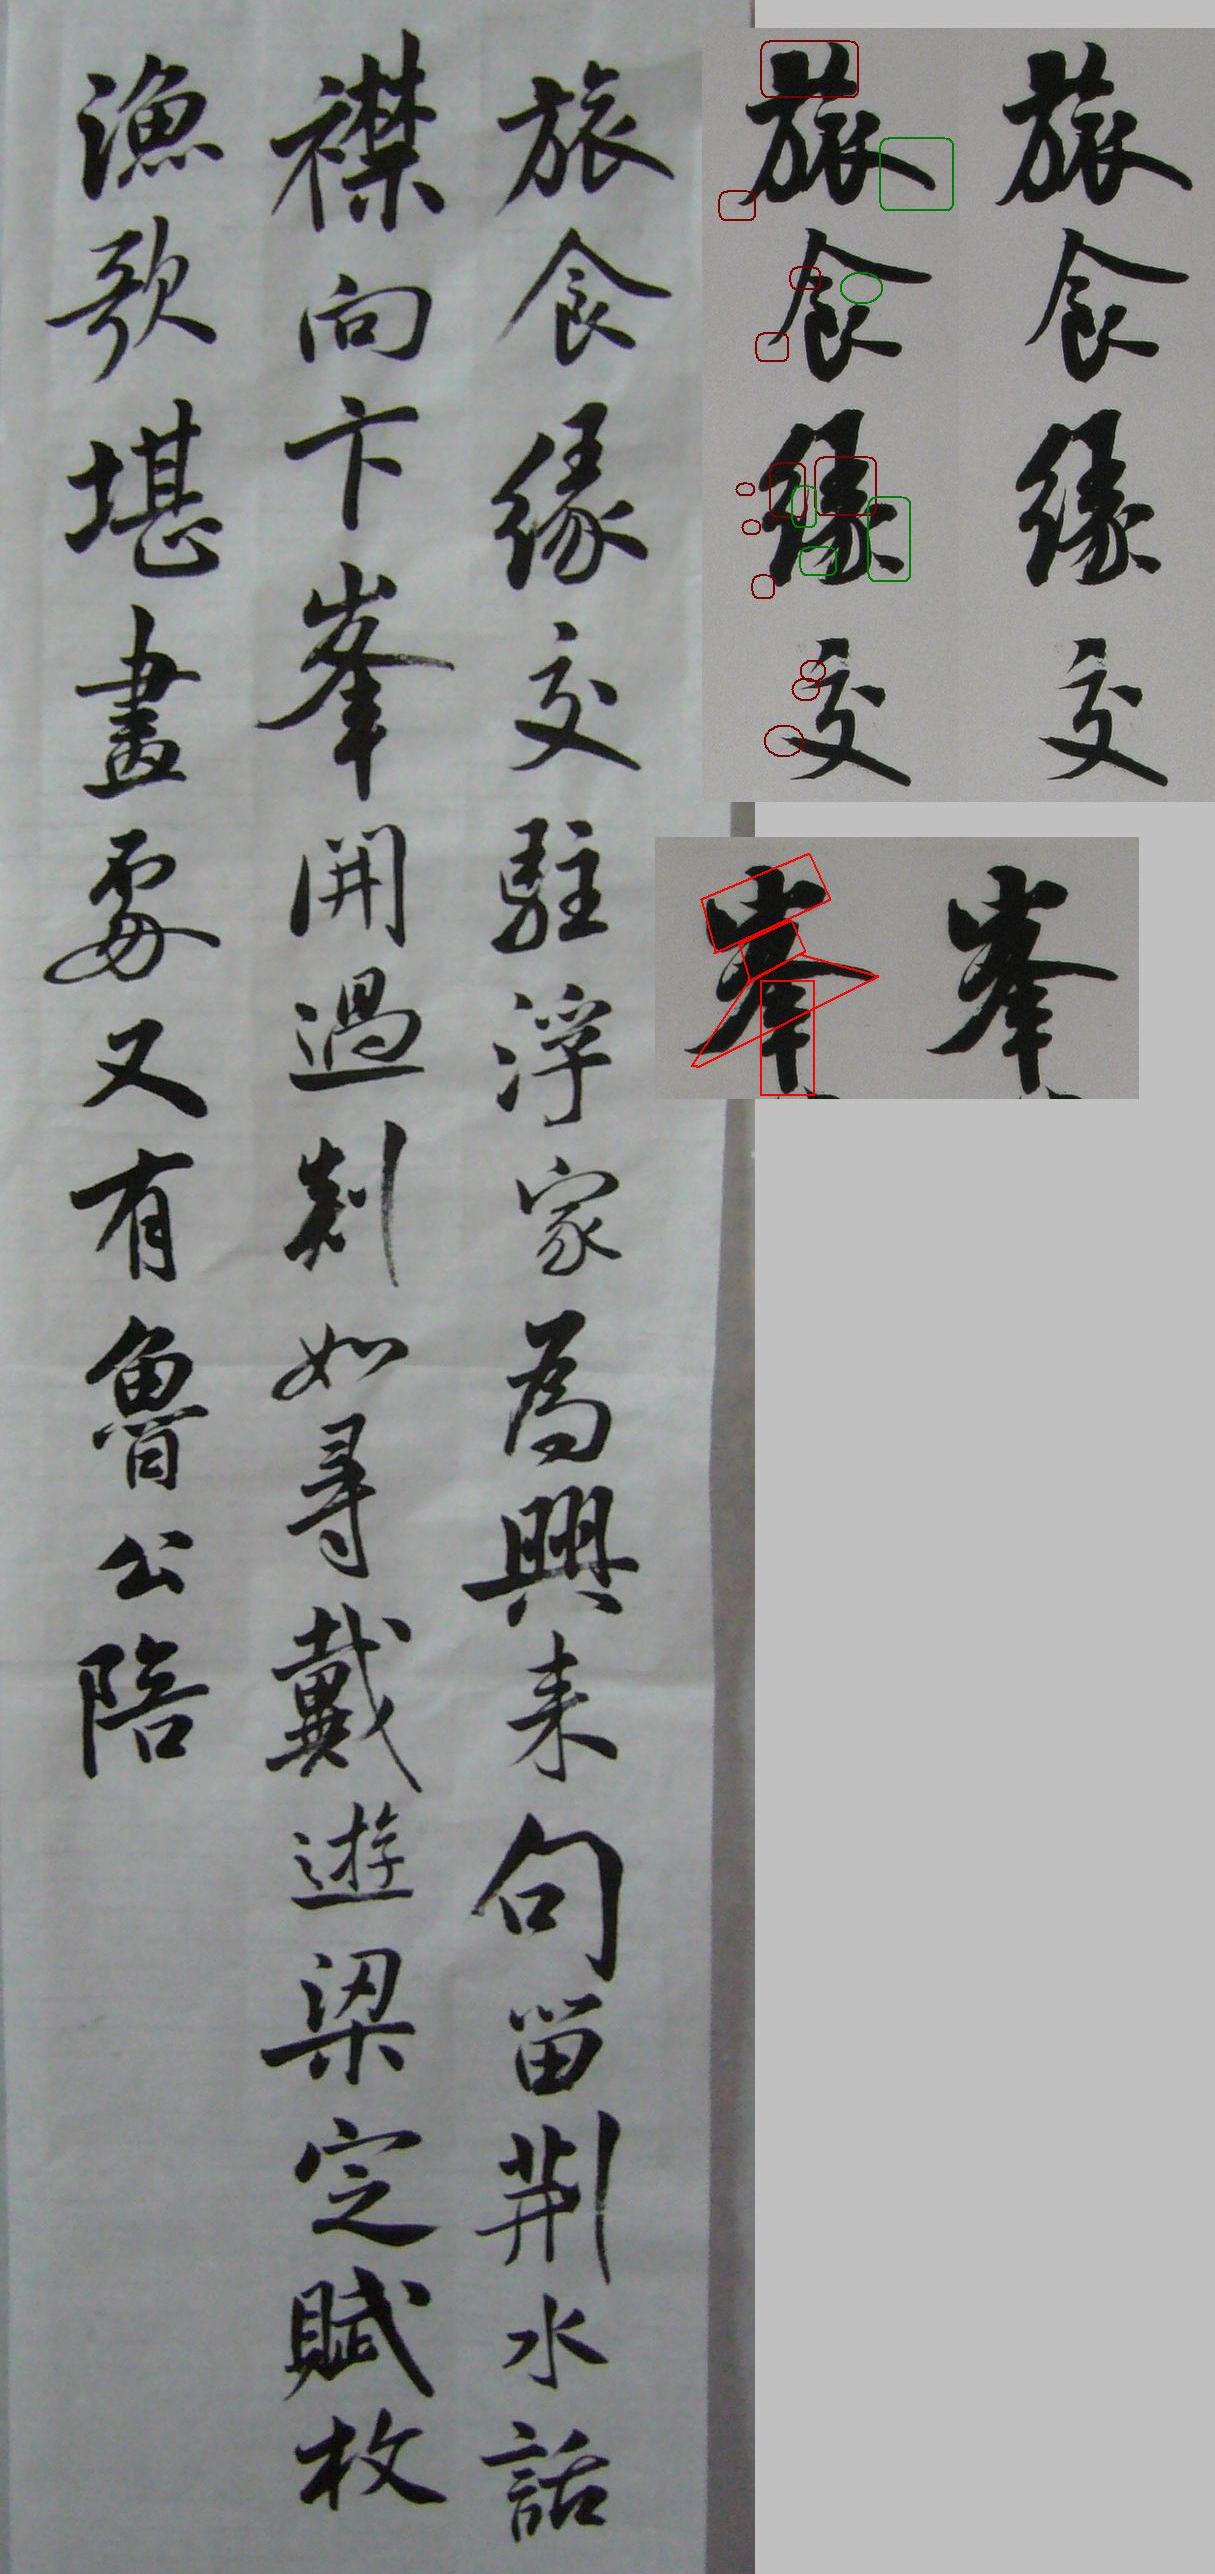 旅食緣交駐浮家為興来句留荆水話
襟向卞峯開過剡如尋戴遊梁定賦枚
漁歌堪畫處又有魯公陪
旅食緣交
旅食緣交
峯
峯